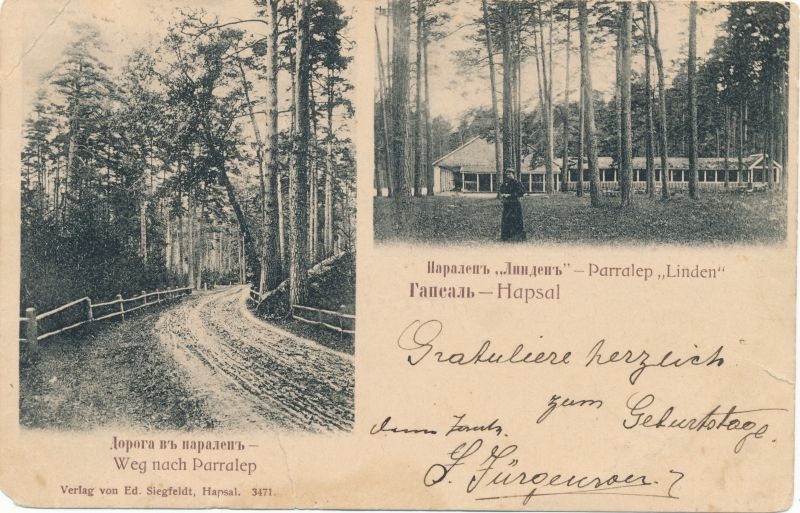 Дорога въ паралепъ —
Weg nach Parralep
Verlag von Ed. Siegfeldt, Hapsal. 3471.
Паралепъ „Линденъ" — Parralep „Linden"
Гапсаль — Hapsal
Gratuliere herzlich
zum Geburtstage.